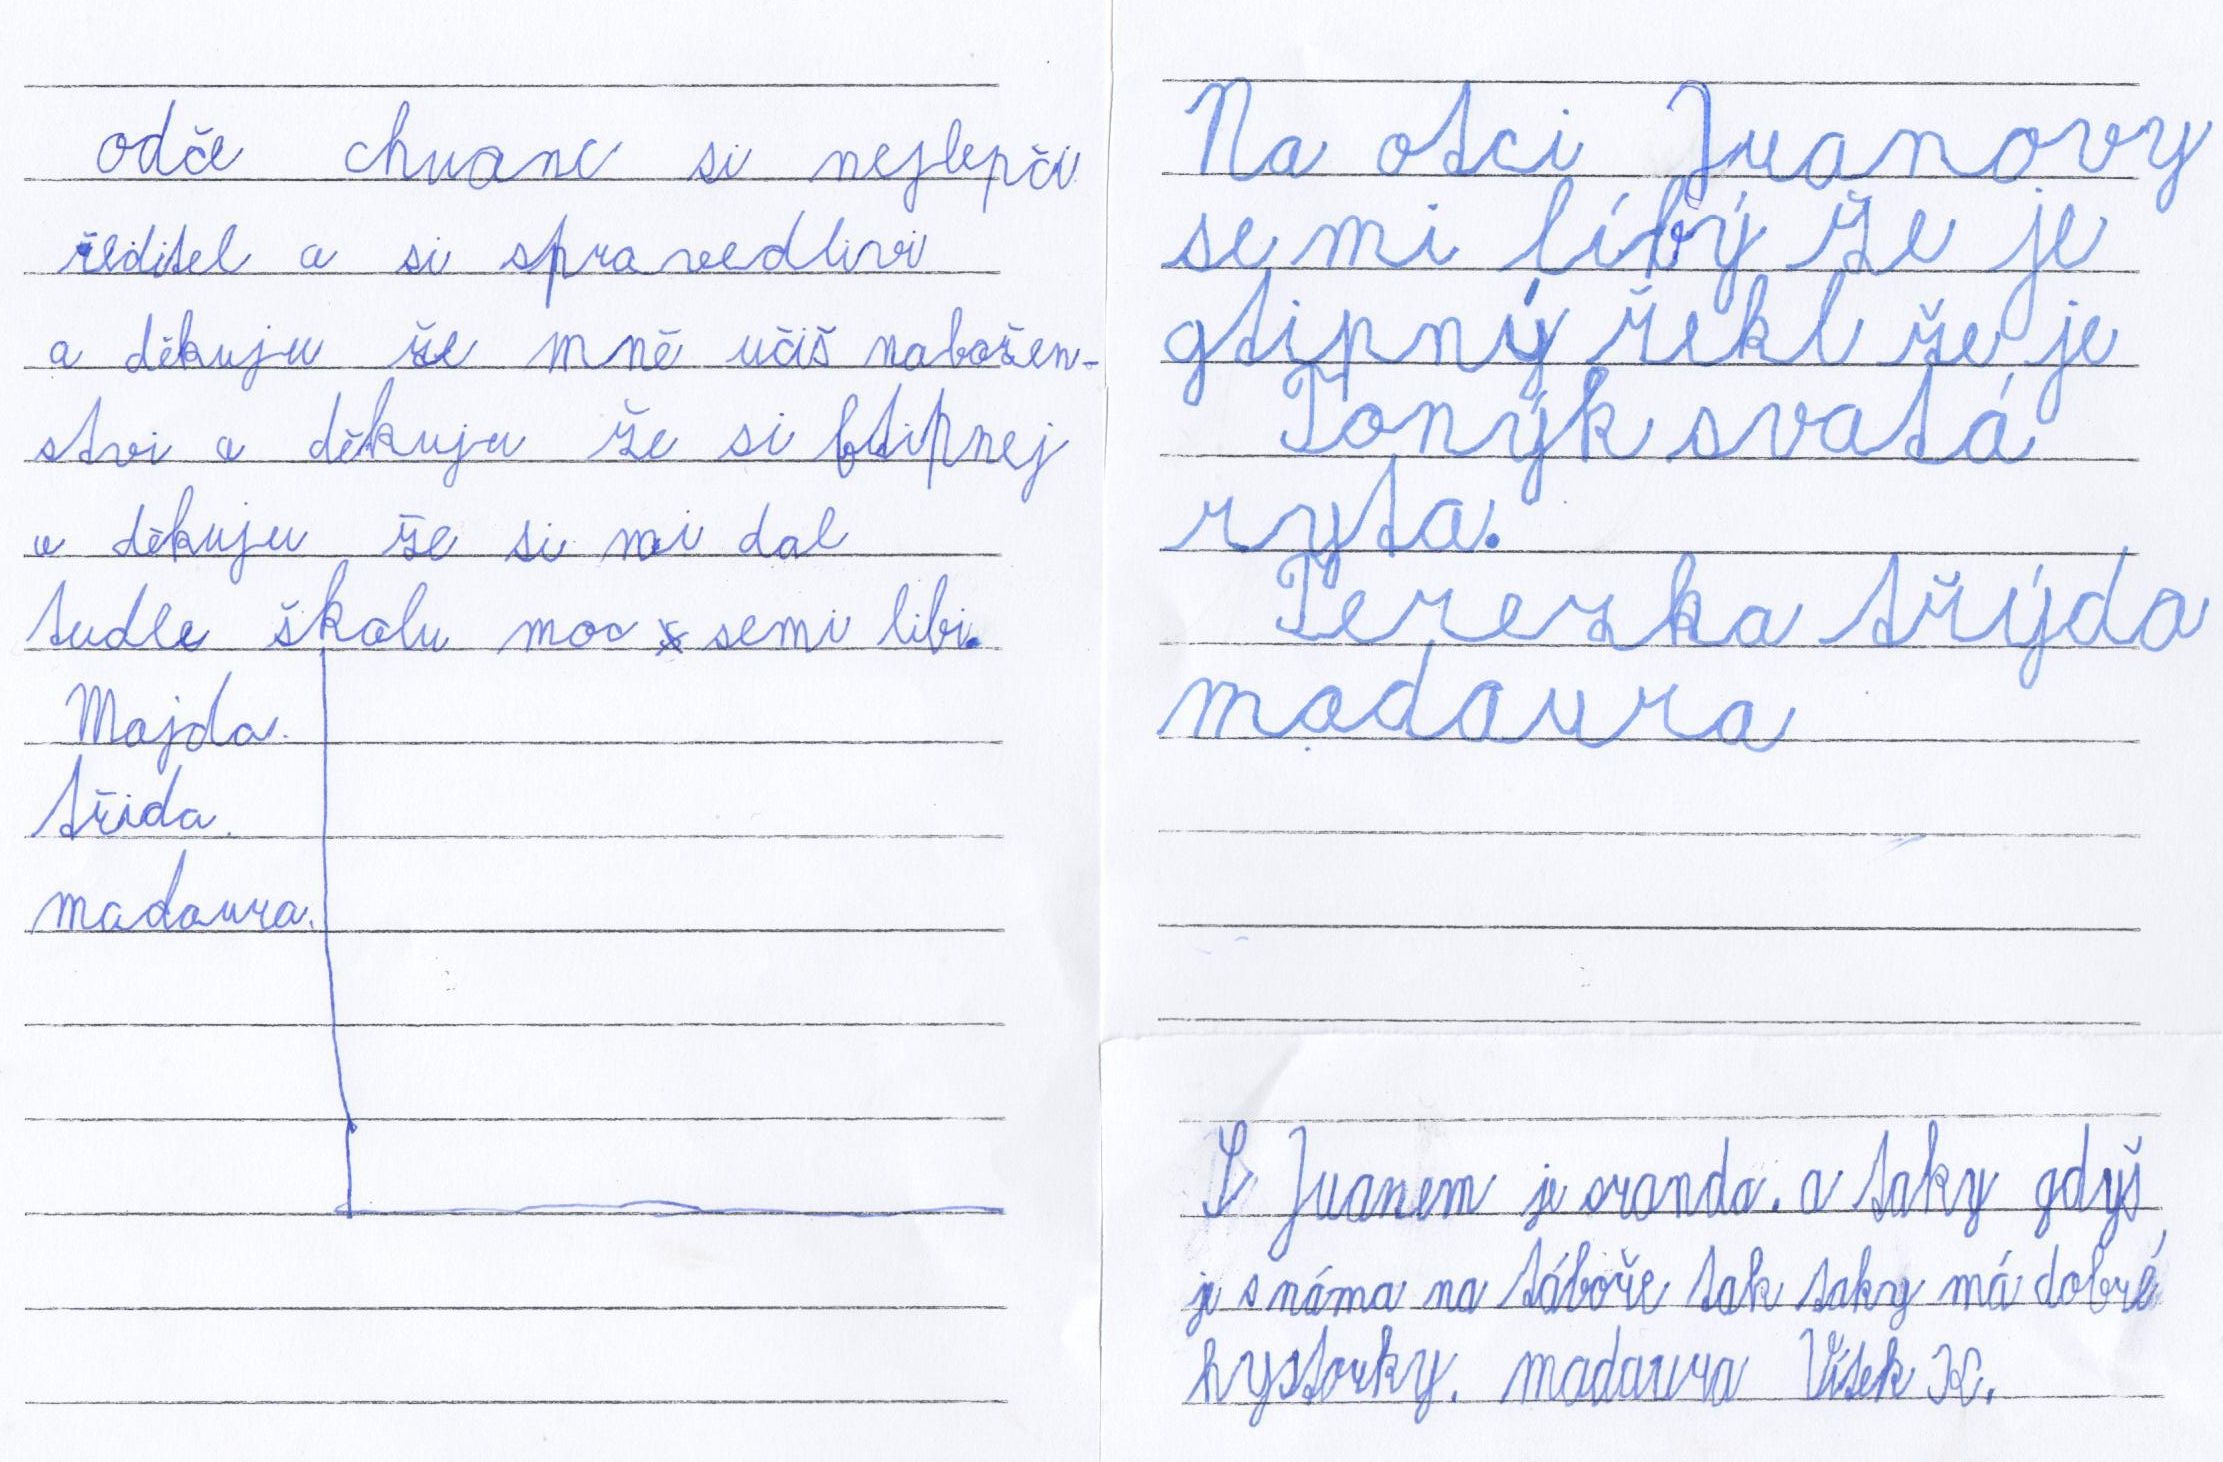 odče chuane si nejlepči
ředitel a si spravedlivi
a děkuju že mně učiš nabožen-
stvi a děkuju že si ftipnej
a děkuju že si mi dal
tudle školu moc semi libi.
Majda.
třida.
madaura.
Na otci Juanovy
se mi líbý že je
gtipný řekl že je
Tonýk svatá
ryta.
Terezka třýda
madaura
S Juanem je sranda. a taky gdyš
je s náma na táboře tak taky má dobré
hystorky. madaura Vítek K.